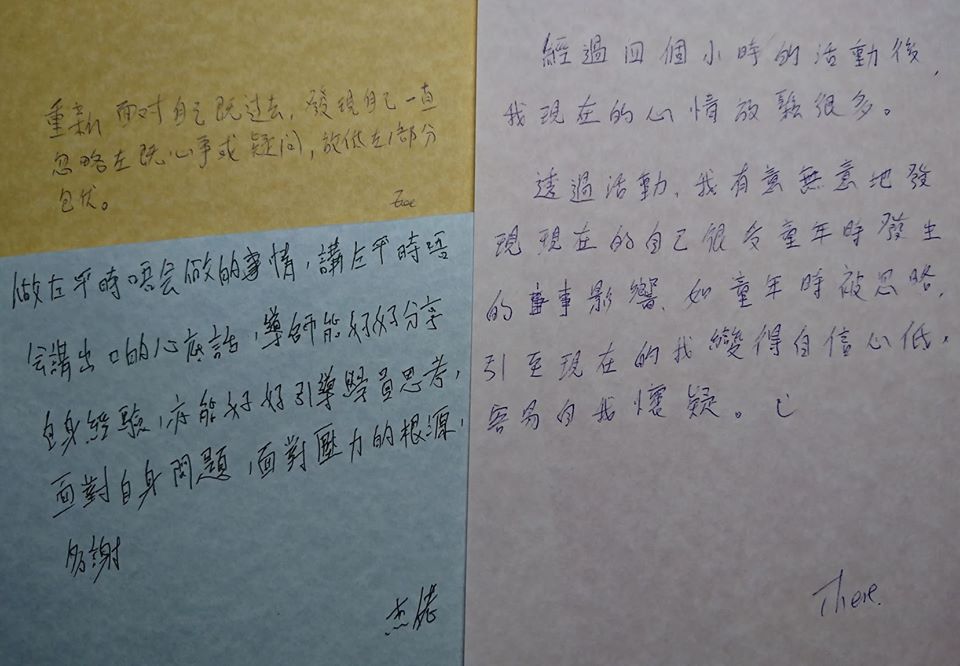 重新面对自己既过去，發現自己一直
忽略左既心事或疑问，放低左1部分
包伏。
做左平時唔会做的事情，講左平時唔
会講出口的心底話，導師能好好分享
自身經驗，亦能好好引導學員思考，
面對自身問題，面對壓力的根源，
多謝
杰佬
經過四個小時的活動後，
我現在的心情放鬆很多。
透過活動，我有意無意地發
現現在的自己很受童年時發生
的事影響，如童年時被忽略，
引至現在的我變得自信心低，
容易自我懷疑。
There.